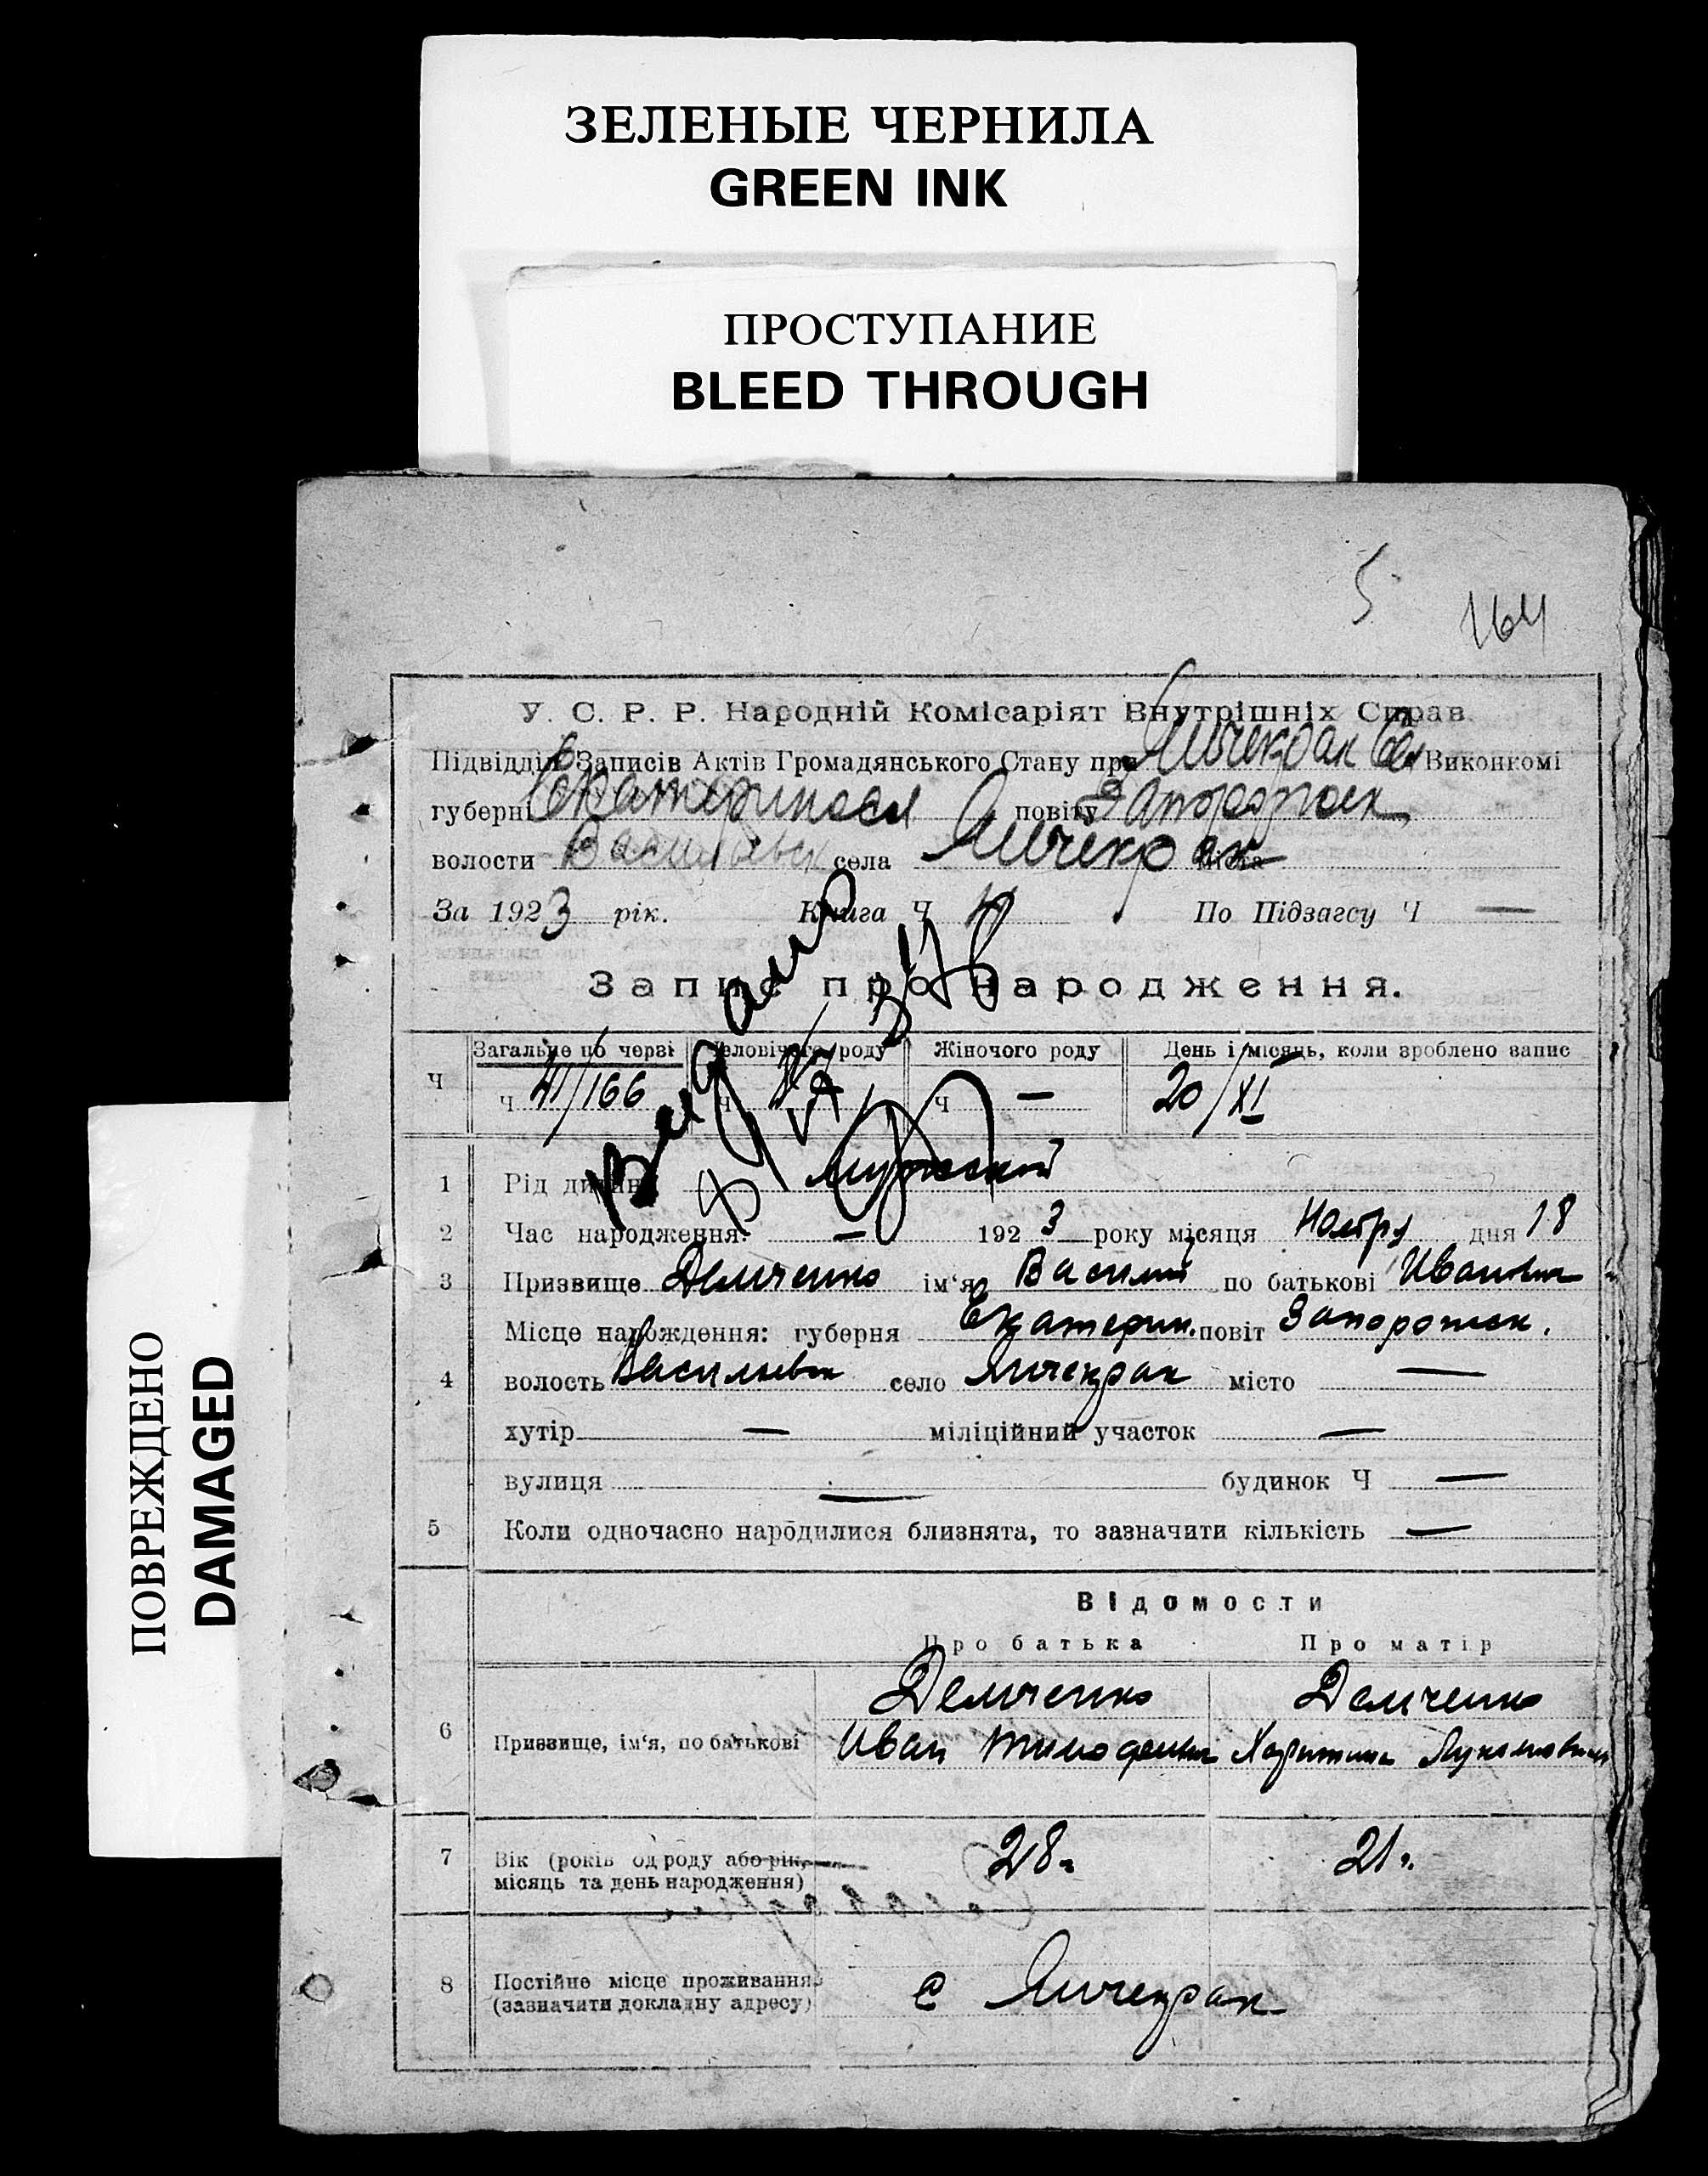 ЗЕЛЕНЫЕ ЧЕРНИЛА
GREEN INK
ПРОСТУПАНИЕ
BLEED THROUGH
ПОВРЕЖДЕНО
DAMAGED
5
164
У. С. Р. Р. Народній Комісаріят Внутрішніх Справ
Підвідділ Записів Актів Громадянського Стану при Янчекрак Сел Виконкомі
губерні Екатериносл повіту Запорожск
волости Васильевск села Янчекрак міста
За 1923 рік. Книга Ч По Підзагсу Ч —
Запис про народження.
Загальне по черзі Чоловічого роду Жіночого роду День і місяць, коли зроблено запис
Ч Ч 41/166 Ч Ч — 20/XI
1 Рід дитини мужский
2 Час народження: — 1923 року місяця Ноября дня 18
3 Призвище Демченко ім'я Василий по батькові Иванович
Місце народження: губерня Екатерин. повіт Запорожск.
4 волость Васильевск село Янчекрак місто —
хутір — міліційний участок —
вулиця — будинок Ч —
5 Коли одночасно народилися близнята, то зазначити кількість —
Відомости
Про батька Про матір
Демченко Демченко
6 Призвище, ім'я, по батькові Иван Тимофеевич Харитина
7 Вік (років од роду або рік, 28 21
місяць та день народження)
8 Постійне місце проживання с Янчекрак
(зазначити докладну адресу)